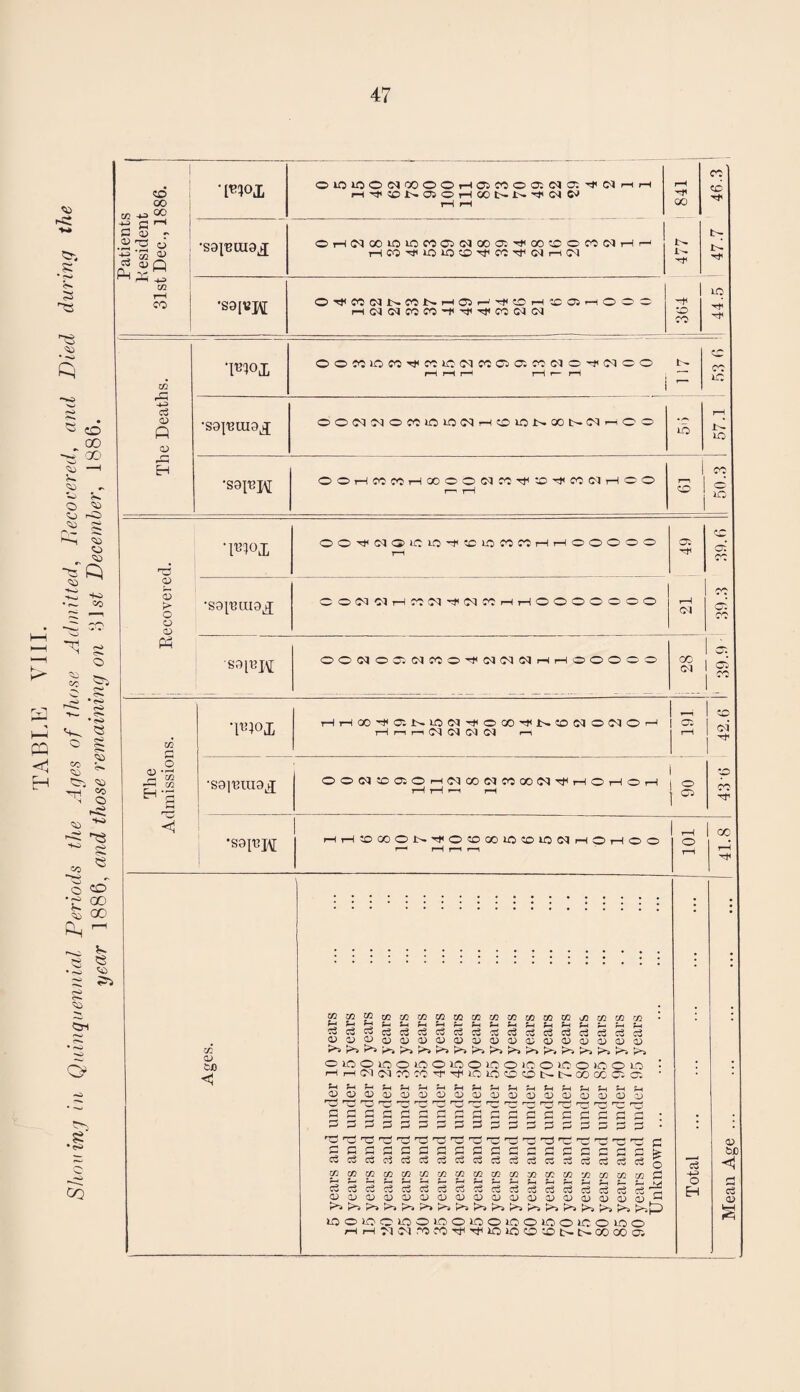 47
TABLE VIII.
Showing in Quinquennial Periods the Ages of those Admitted, Recovered, and Died during the
year 1886, and those remaining on 31st December, 1886.
Ages. The Admissions. Recovered. The Deaths. Patients Resident 31st Dec., 1886.
Males. Females. Total. Males. Females. Total. Males. Females. Total. Males. Females. Total.
5 years and under 10 years ... 1 0 1 0 0 0 0 0 0 0 0 0
10 years and under 15 years ... 1 0 1 0 0 0 0 0 0 4 1 5
15 years and under 20 years ... 6 2 8 2 2 4 1 2 3 13 2 15
20 years and under 25 years ... 8 6 14 0 2 2 3 2 5 22 18 40
25 years and under 30 years ... 10 9 19 9 1 10 3 0 3 27 35 62
30 years and under 35 years ... 7 10 17 2 3 5 1 3 4 33 45 78
35 years and under 40 years ... 14 11 25 3 2 5 8 5 13 37 53 90
40 years and under 45 years ... 10 12 22 0 4 4 10 5 15 41 59 100
45 years and under 50 years ... 16 8 24 4 2 6 10 2 12 49 62 111
50 years and under 55 years ... 8 12 20 2 3 5 2 1 3 41 48 89
55 years and under 60 years ... 5 3 8 2 1 3 3 6 9 34 39 73
60 years and under 65 years ... 6 8 14 2 1 3 4 5 9 26 44 70
65 years and under 70 years ... 5 2 7 1 0 1 6 7 13 21 28 49
70 years and under 75 years ... 2 4 6 1 0 1 4 8 12 6 16 22
75 years and under 80 years ... 1 1 2 0 0 0 3 7 10 9 20 29
80 years and under 85 years ... 0 0 0 0 0 0 2 2 4 1 3 4
85 years and under 90 years ... 1 1 2 0 0 0 1 1 2 0 2 2
90 years and under 95 years ... 0 0 0 0 0 0 0 0 0 0 1 1
Unknown ... 0 1 1 0 0 0 0 0 0 0 1 1
Total ... 101 90 191 28 21 49 61 56 117 364 477 841
Mean Age ... 41.8 43.6 42.6 39.9 39.3 39.6 50.3 57.1 53.6 44.5 47.7 46.3